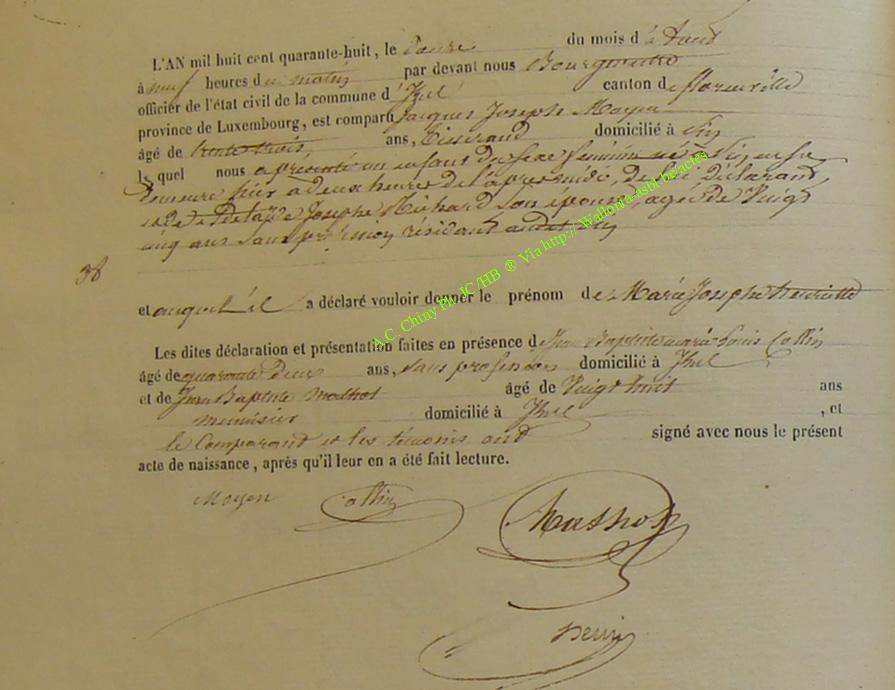 L'AN mil huit cent quarante-huit, le douze du mois d'août
à neuf heures du matin par devant nous Bourgmestre
officier de l'état civil de la commune d'Izel canton de florenville
province de Luxembourg, est comparu Jacques Joseph Moyen
âgé de trente trois ans, tisserand domicilié à
lequel nous a présenté un enfant du sexe féminin né en sa
demeure hier à deux heures de l'apres midi, de lui déclarant
et de Joseph son épouse, agée de Vingt
cinq ans sans résidant
38
et auquel il a déclaré vouloir donner le prénom de Marie Josephe henriette
Les dites déclaration et présentation faites en présence de Jean Baptiste marie Louis Collin
âgé de quarante deux ans, sans profession domicilié à Izel
et de Jean Baptiste Mathot âgé de Vingt huit ans
menuisier domicilié à Izel , et
le Comparant et les témoins ont signé avec nous le présent
acte de naissance, après qu'il leur en a été fait lecture.
Moyen Collin
Mathot
henri
A.C. Chiny Ph. JC/HB ® Via http://Wallonia-asbl.be/actes